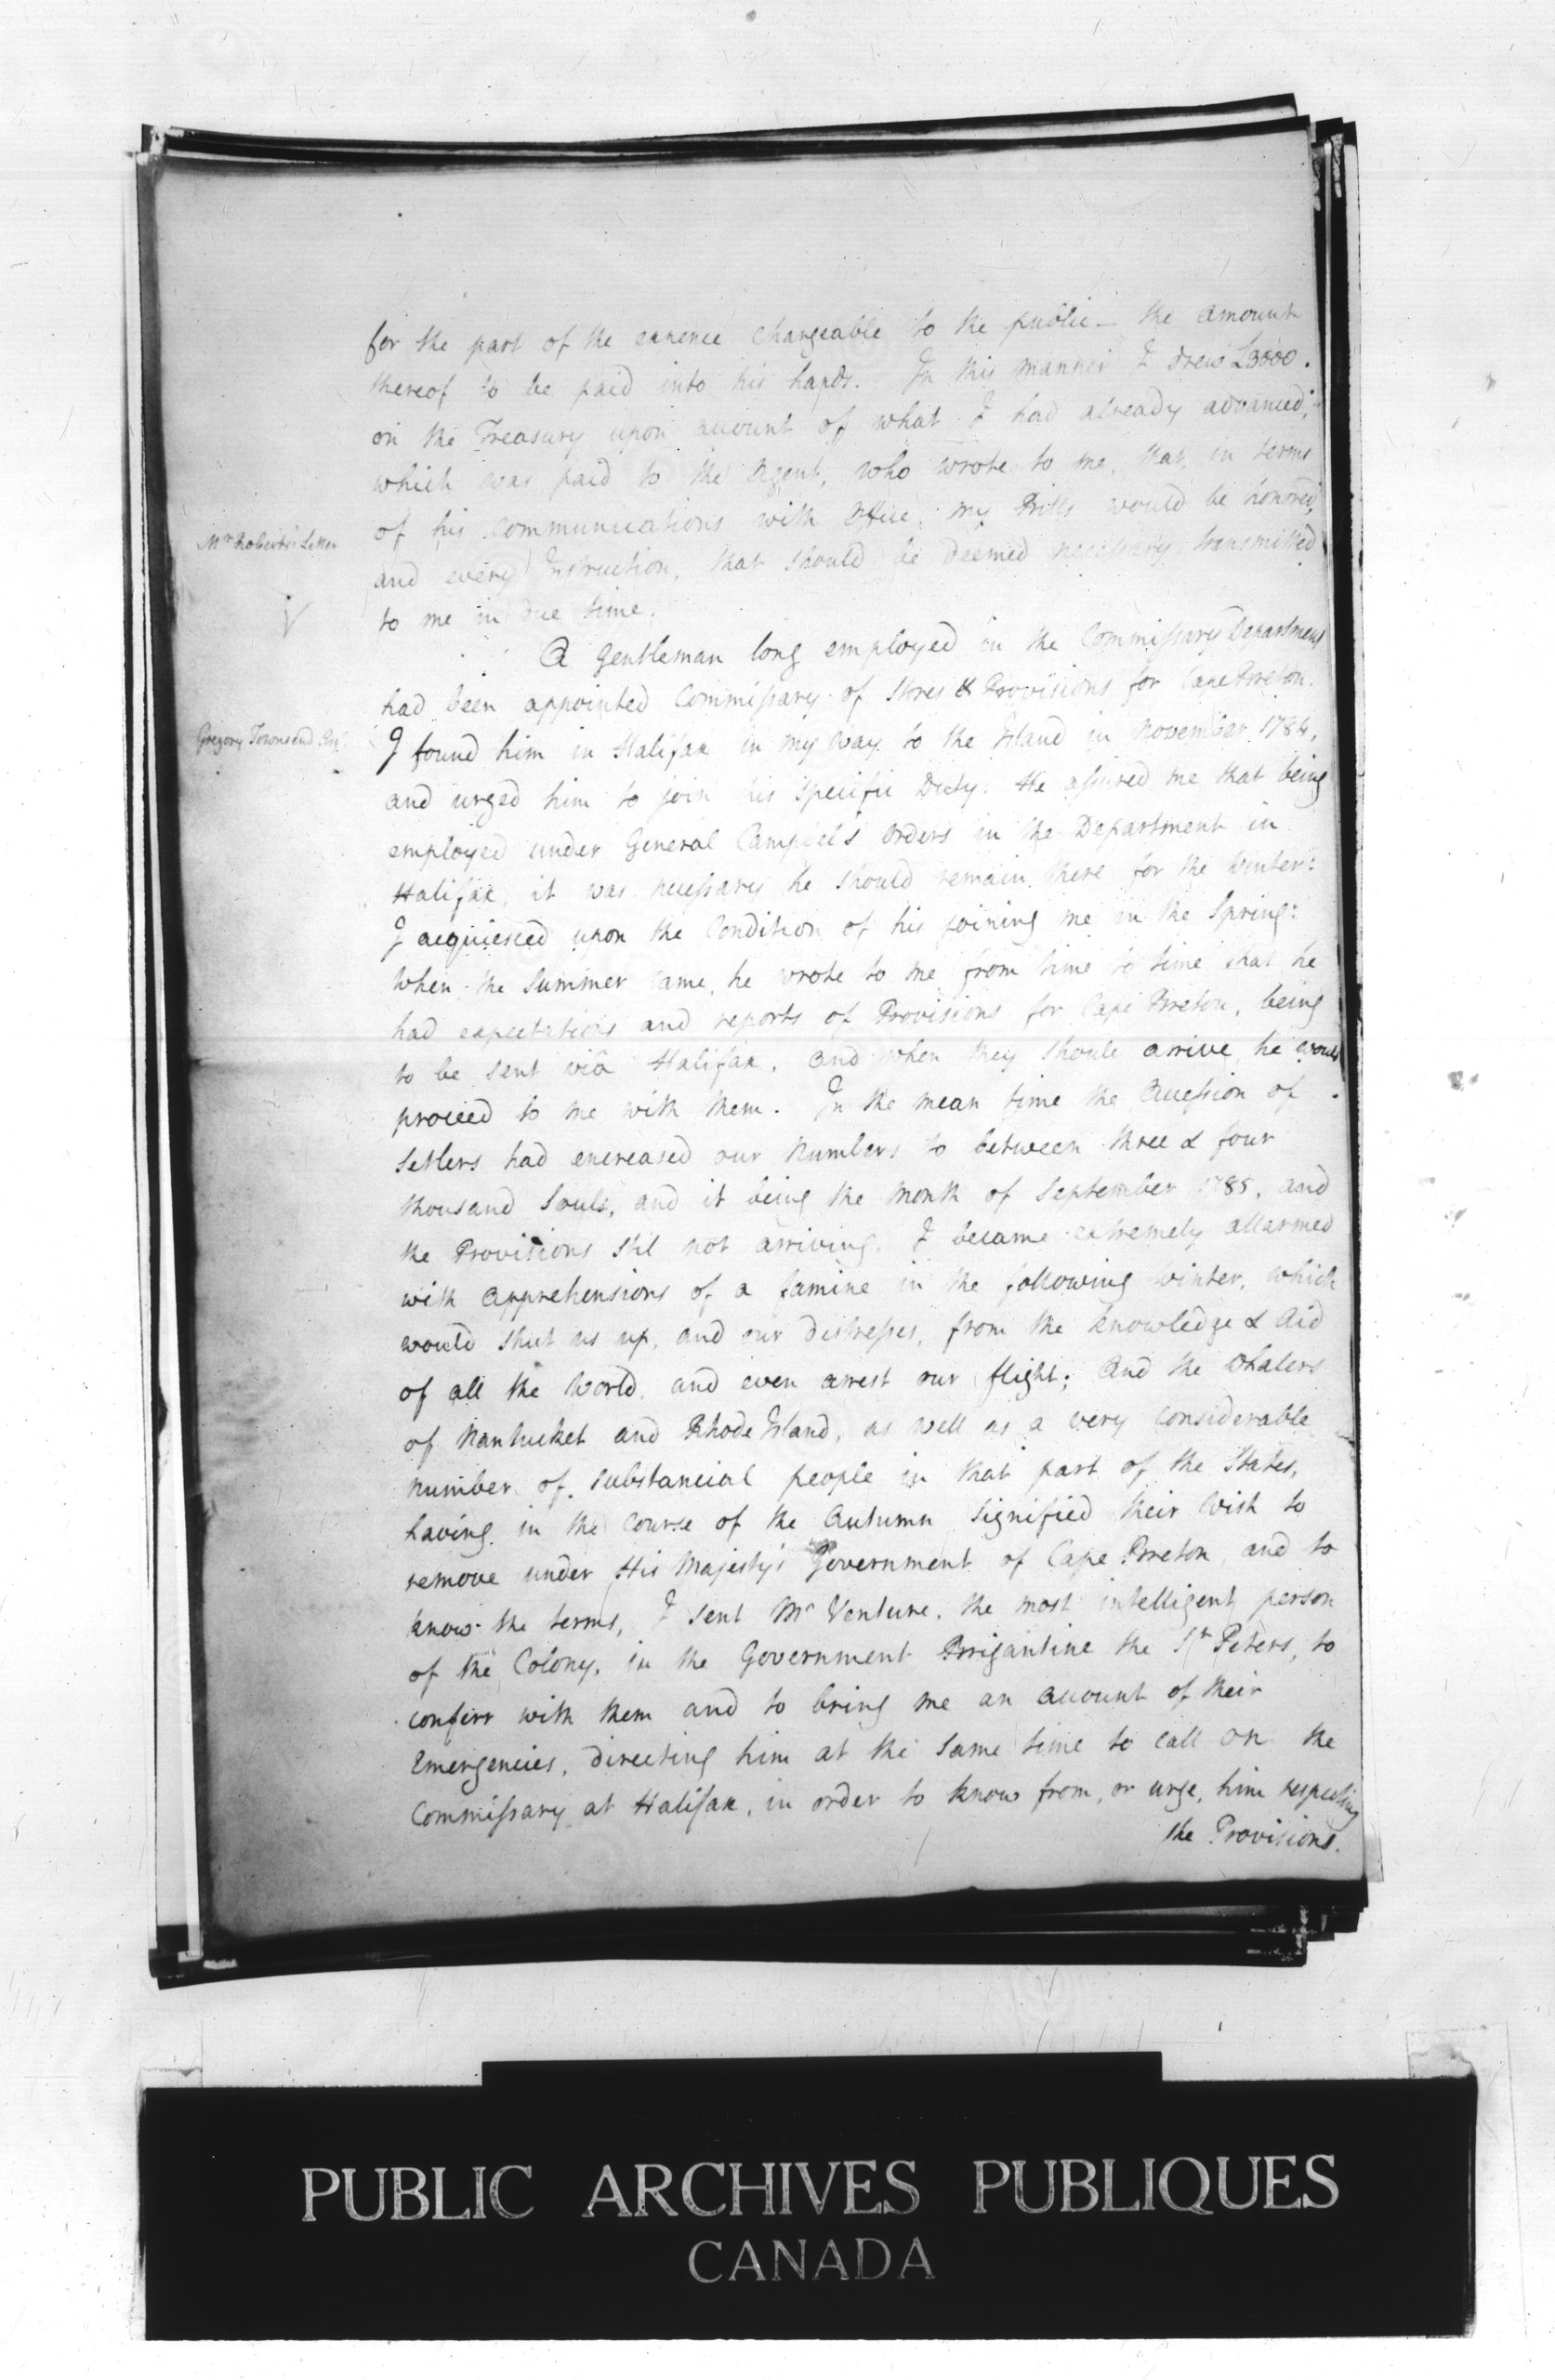 for the part of the expence chargeable to the public – the amount
thereof to be paid into his hands. In this manner I drew £3000.
on the Treasury upon account of what I had already advanced;
which was paid to the Agent, who wrote to me, that, in terms
of his communications with Office, my Bills would be honored,
Mr Roberts's Letter
and every Instruction, that should be deemed necessary, transmitted
to me in due time.
A Gentleman long employed in the Commissary Department
had been appointed Commissary of Stores & Provisions for Cape Breton.
Gregory Townsend Esqr
I found him in Halifax in my way to the Island in November 1784,
and urged him to join his specific Duty. He assured me that being
employed under General Campbel's Orders in the Department in
Halifax, it was necessary he should remain there for the Winter:
I acquiesced upon the Condition of his joining me in the Spring:
When the Summer came, he wrote to me from time to time that he
had expectations and reports of Provisions for Cape Breton, being
to be sent viâ Halifax, and when they should arrive he would
proceed to me with them. In the mean time the Accession of
Setlers had encreased our Numbers to between three & four
thousand Souls, and it being the Month of September 1785, and
the Provisions stil not arriving, I became extremely allarmed
with Apprehensions of a famine in the following Winter, which
would shut us up, and our distresses, from the knowledge & Aid
of all the World, and even arrest our flight; And the Whalers
of Nantucket and Rhode Island, as well as a very considerable
number of substancial people in that part of the States,
having in the Course of the Autumn signified their Wish to
remove under His Majesty's Government of Cape Breton, and to
know the terms, I sent Mr Venture, the most intelligent person
of the Colony, in the Government Brigantine the St Peters, to
conferr with them and to bring me an account of their
Emergencies, directing him at the same time to call on the
Commissary at Halifax, in order to know from, or urge, him respecting
the Provisions.
PUBLIC ARCHIVES PUBLIQUES
CANADA